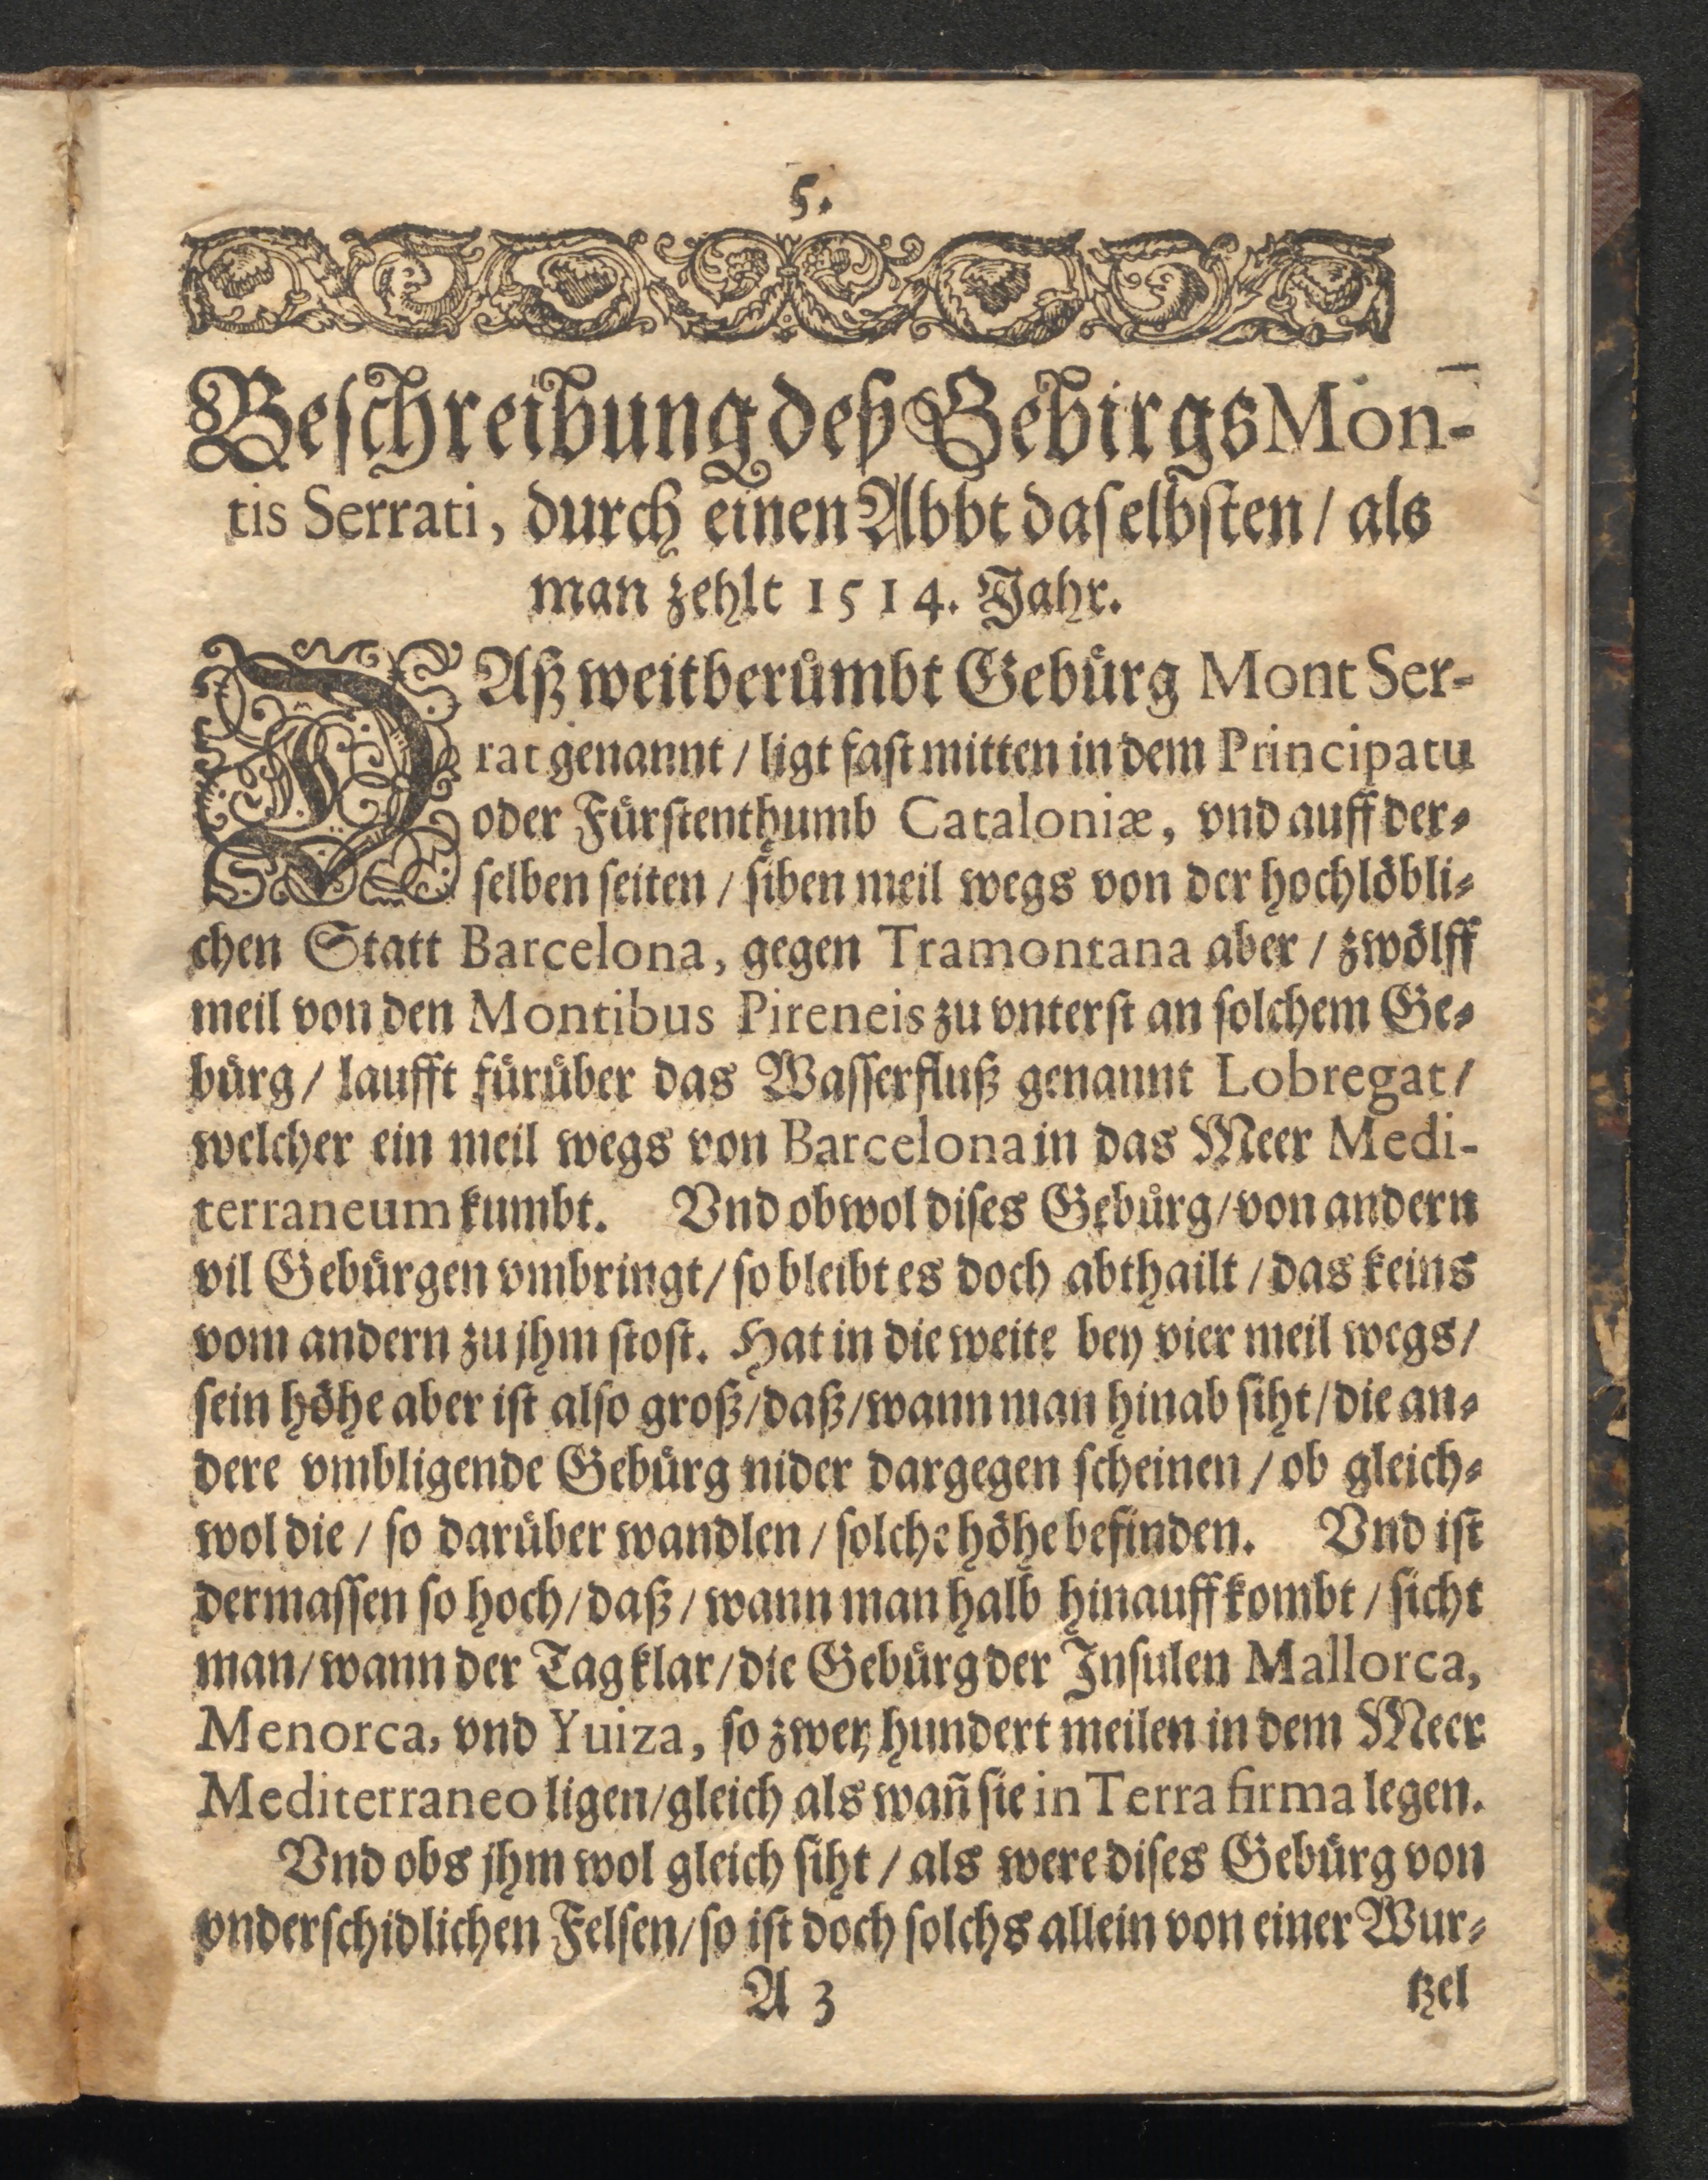 5.
Beschreibung deß Gebirgs Mon-
tis Serrati, durch einen Abbt daselbsten / als
man zehlt 1514. Jahr.
DAß weitberuͤmbt Gebuͤrg Mont Ser-
rat genannt / ligt fast mitten in dem Principatu
oder Fuͤrstenthumb Cataloniæ, vnd auff der-
selben seiten / siben meil wegs von der hochloͤbli-
chen Statt Barcelona, gegen Tramontana aber / zwoͤlff
meil von den Montibus Pireneis zu vnterst an solchem Ge-
buͤrg / laufft fuͤruͤber das Wasserfluß genannt Lobregat /
welcher ein meil wegs von Barcelona in das Meer Medi-
terraneum kumbt. Vnd obwol dises Gebuͤrg / von andern
vil Gebuͤrgen vmbringt / so bleibt es doch abthailt / das keins
vom andern zu jhm stost. Hat in die weite bey vier meil wegs /
sein hoͤhe aber ist also groß / daß / wann man hinab siht / die an-
dere vmbligende Gebuͤrg nider dargegen scheinen / ob gleich-
wol die / so daruͤber wandlen / solche hoͤhe befinden. Vnd ist
dermassen so hoch / daß / wann man halb hinauff kombt / sicht
man / wann der Tag klar / die Gebuͤrg der Insulen Mallorca,
Menorca, vnd Yuiza, so zwey hundert meilen in dem Meer
Mediterraneo ligen / gleich als wañ sie in Terra firma legen.
Vnd obs jhm wol gleich siht / als were dises Gebuͤrg von
vnderschidlichen Felsen / so ist doch solchs allein von einer Wur-
A 3 tzel